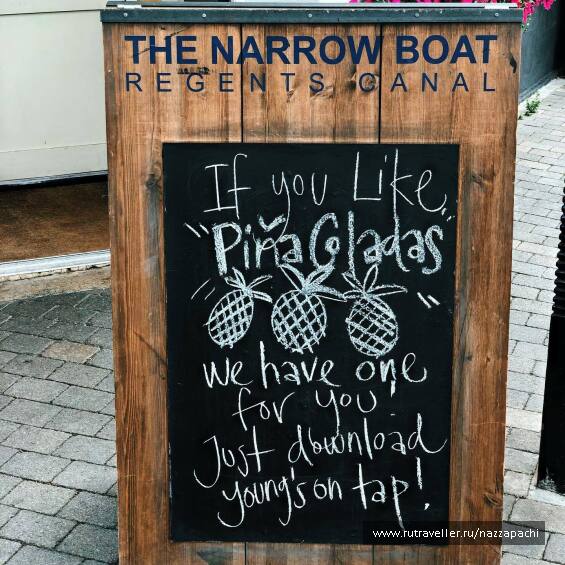 THE NARROW BOAT
REGENTS CANAL
If you Like
"Piña Coladas"
we have one
for you
Just download
young's on tap!
www.rutraveller.ru/nazzapachi